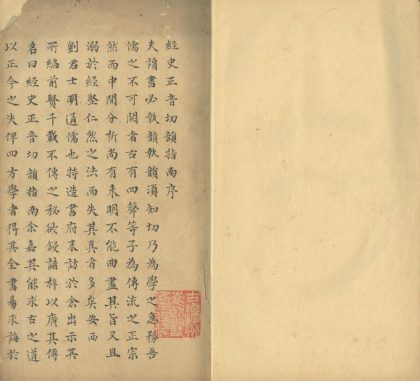 經史正音切韻指南序
夫讀書必執韻執韻須知切乃為學之急務吾
儒之不可闕者古有四聲等子為傳流之正宗
然而中間分析尚有未明不能曲盡其旨又且
溺於經堅仁然之法而失其真者多矣安西
劉君士明通儒也特造書府來訪於余出示其
所編前賢千載不傳之秘欲鋟諸梓以廣其傳
名曰經史正音切韻指南余嘉其能求古之道
以正今之失俾四方學者得其全書易求誨於